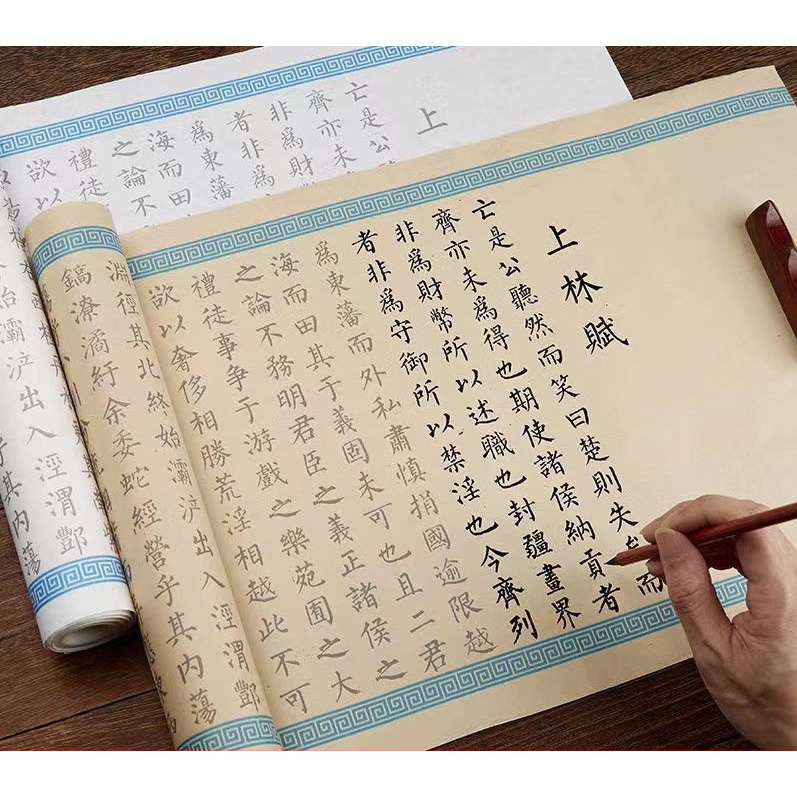 上林賦
亡是公聽然而笑曰楚則失而
齊亦未爲得也期使諸侯納貢者
非爲財幣所以述職也封疆畫界
者非爲守御所以禁淫也今齊列
爲東藩而外私肅慎捐國逾限越
海而田其于義固未可也且二君
之論不務明君臣之義正諸侯之
禮徒事争于游戲之樂苑囿之大
欲以奢侈相勝荒淫相越此不可
淵徑其北終始灞浐出入涇渭酆
鎬潦潏紆余委蛇經營乎其内蕩
上
亡是公
齊亦未
非爲財
者非爲
爲東藩
海而田
之論不
禮徒
欲以
始灞浐出入涇渭酆
乎其内蕩